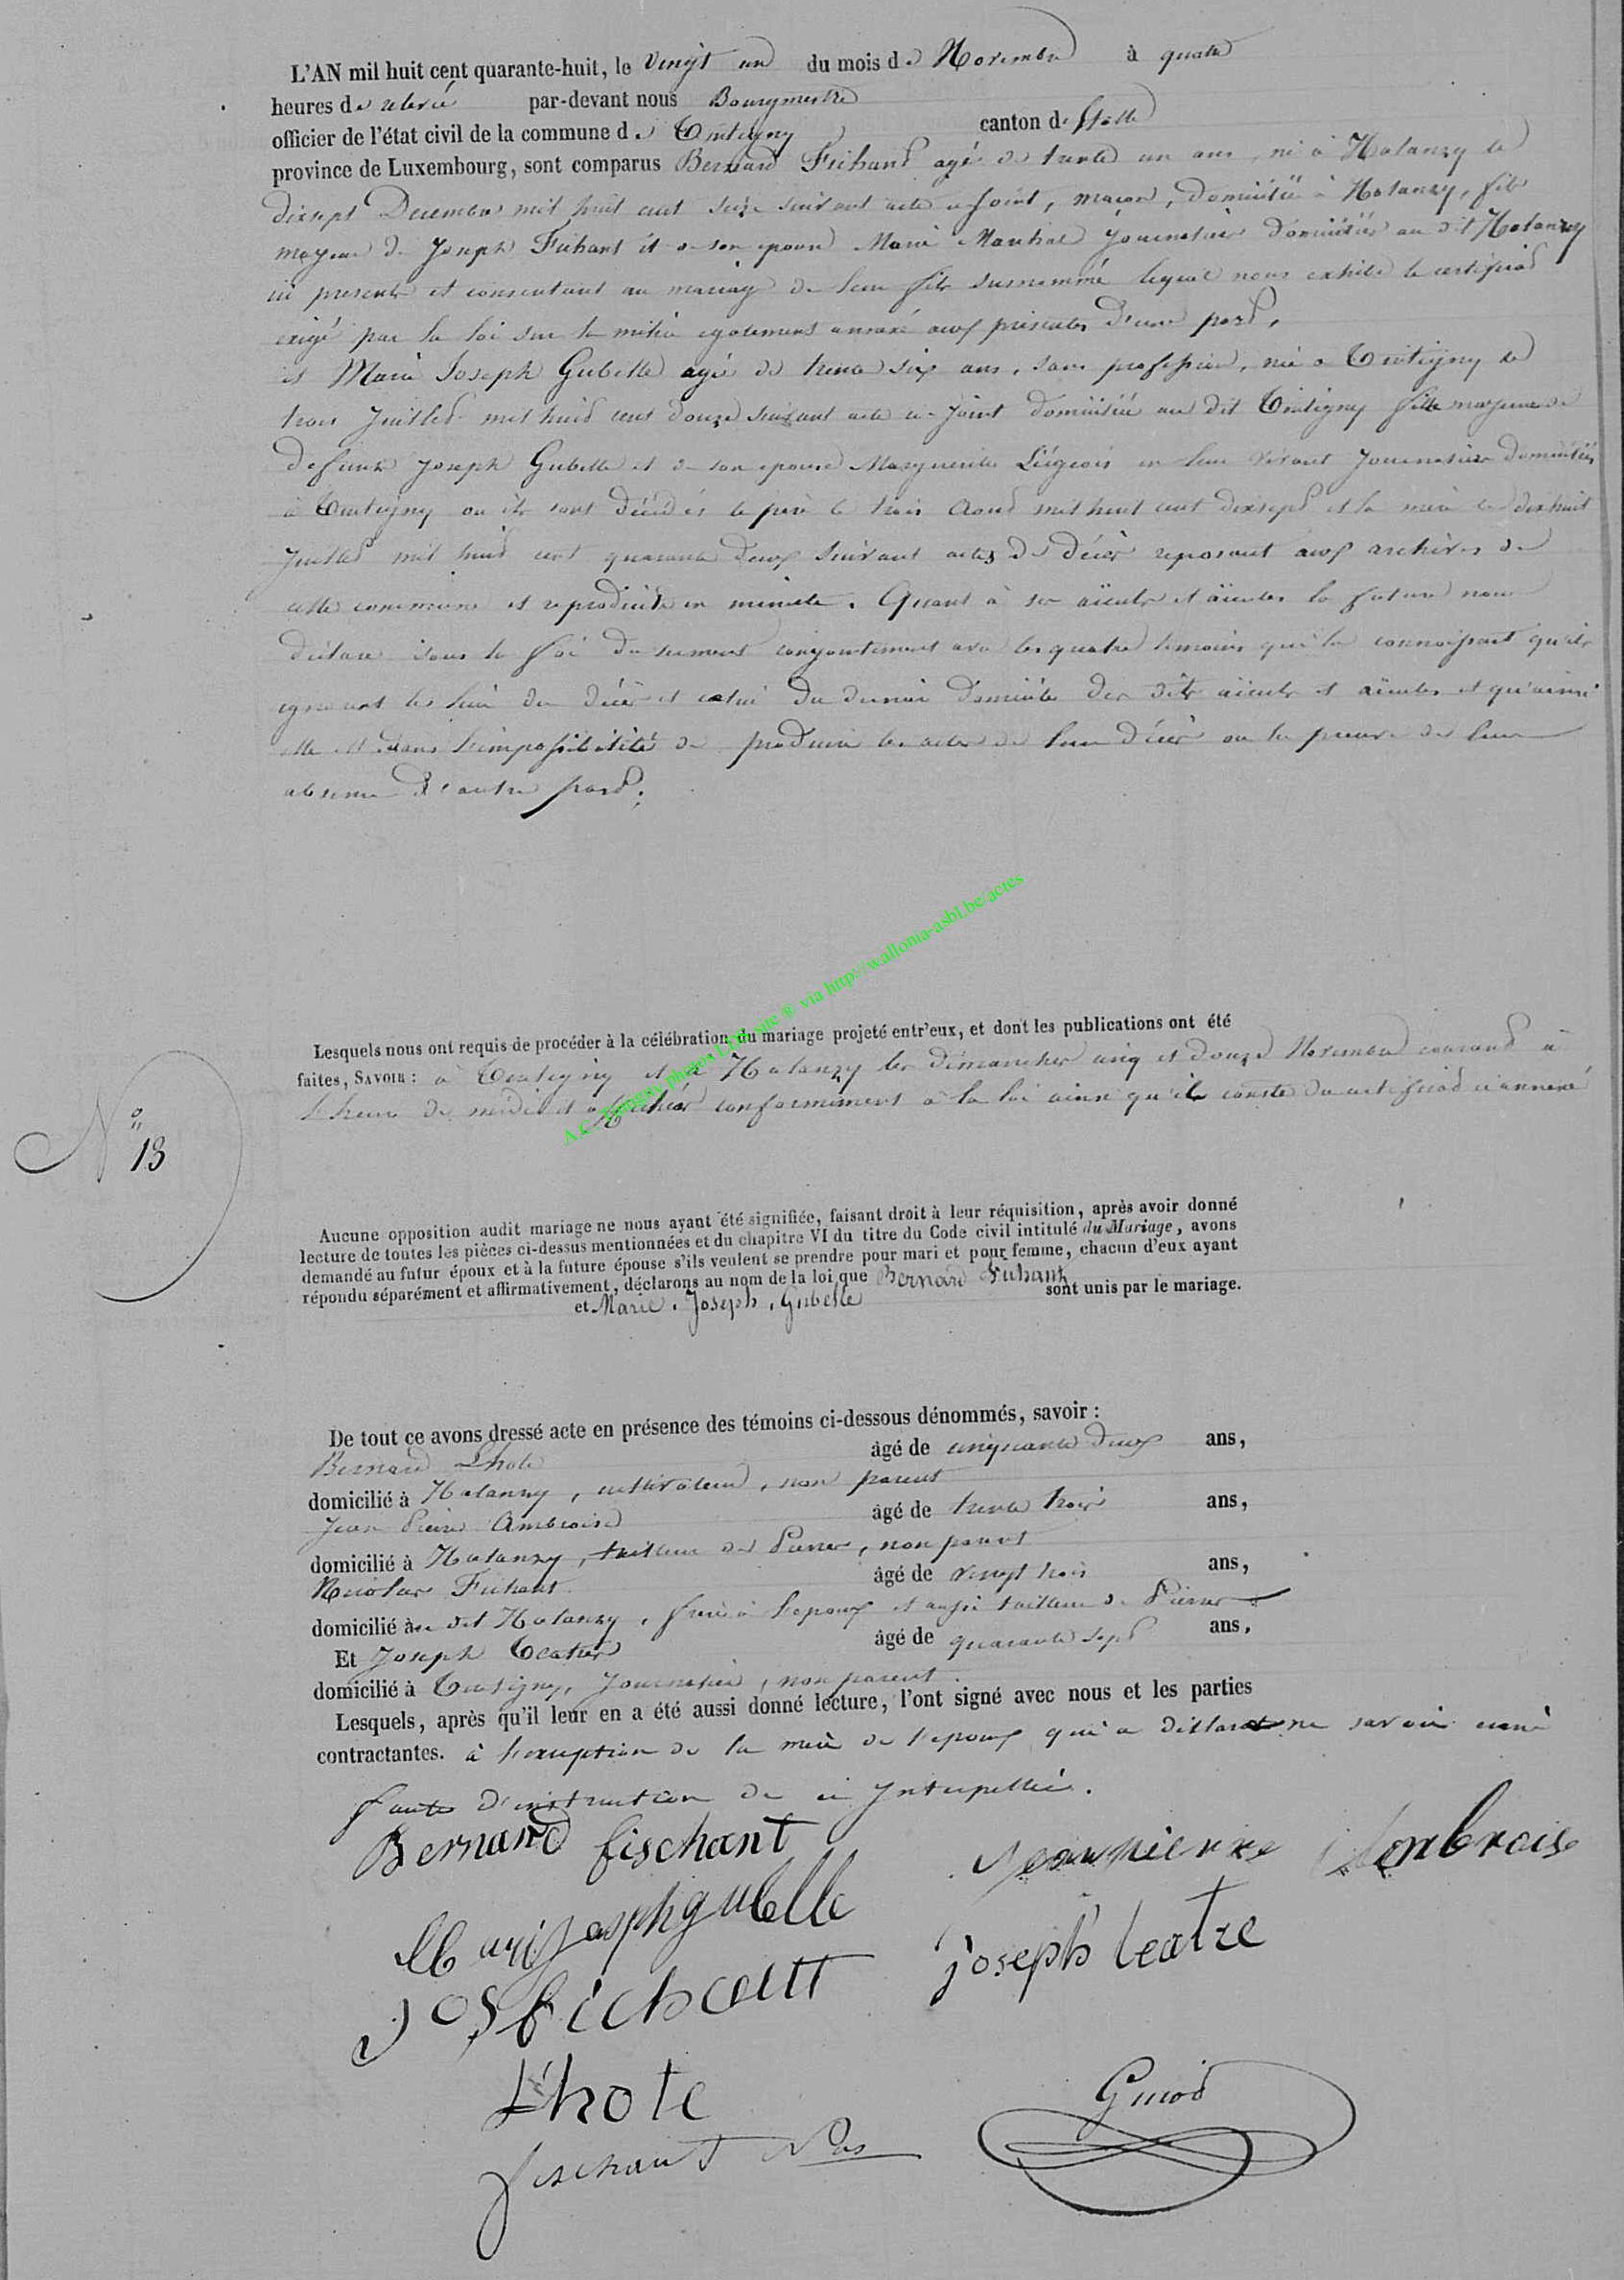 L'AN mil huit cent quarante-huit, le vingt un du mois de Novembre à quatre
heures de relevée par-devant nous Bourgmestre
officier de l'état civil de la commune de Tintigny canton d'Etalle
province de Luxembourg, sont comparus Bernard Fichant agé de trente un ans, né à Halanzy le
dixsept Decembre mil huit cent seize suivant acte ci joint, maçon, domicilié à Halanzy, fils
majeur de Joseph Fichant et de son epouse Marie Marchal journaliers domiciliés au dit Halanzy
ici presents et consentant au mariage de leur fils surnommé lequel nous exhibe le certificat
exigé par la loi sur la milice egalement annexé aux présentes d'une part,
et Marie Joseph Gubelle agée de trente six ans, sans profession, née à Tintigny le
trois Juillet mil huit cent douze suivant acte ci-joint domiciliée au dit Tintigny fille majeure de
defunts Joseph Gubelle et de son epouse Marguerite Liégeois en leur vivant journaliers domiciliés
à Tintigny ou ils sont décédés le père le trois Aout mil huit cent dixsept et la mère le dixhuit
Juillet mil huit cent quarante deux suivant actes de décès reposant aux archives de
cette commune et reproduits en minute. Quant à ses aïeuls et aïeules la future nous
déclare sous la foi du serment conjointement avec les quatre témoins qui la connoissent qu'ils
ignorent les lieu du décès et celui du dernier domicile des dits aïeuls et aïeules et qu'ainsi
elle est dans l'impossibilité de produire les actes de leur décès ou la preuve de leur
absence d'autre part.
Lesquels nous ont requis de procéder à la célébration du mariage projeté entr'eux, et dont les publications ont été
faites, SAVOIR : à Tintigny et à Halanzy les dimanches cinq et douze Novembre courant à
l'heure de midi et affichées conformément à la loi ainsi qu'il conste du certificat ci annexé
N° 13
A.C. Tintigny photos via http://wallonia-asbl.be/actes
Aucune opposition audit mariage ne nous ayant été signifiée, faisant droit à leur réquisition, après avoir donné
lecture de toutes les pièces ci-dessus mentionnées et du chapitre VI du titre du Code civil intitulé du Mariage, avons
demandé au futur époux et à la future épouse s'ils veulent se prendre pour mari et pour femme, chacun d'eux ayant
répondu séparément et affirmativement, déclarons au nom de la loi que Bernard Fichant
et Marie Joseph Gubelle sont unis par le mariage.
De tout ce avons dressé acte en présence des témoins ci-dessous dénommés, savoir :
Bernard Lhote âgé de cinquante deux ans,
domicilié à Halanzy, cultivateur, non parent
Jean Pierre Ambroise âgé de trente trois ans,
domicilié à Halanzy, tailleur de Pierres, non parent
Nicolas Fichant âgé de vingt trois ans,
domicilié au dit Halanzy, frère à l'epoux et aussi tailleur de Pierres
Et Joseph Leatre âgé de quarante sept ans,
domicilié à Tintigny, Journalier, non parent.
Lesquels, après qu'il leur en a été aussi donné lecture, l'ont signé avec nous et les parties
contractantes. à l'exception de la mère de l'epoux qui a déclaré ne savoir ecrire
faute d'instruction de ce Interpellée.
Bernard fischant
Jeanpierre Ambroise
Marijosephgubelle
joseph leatre
Jos fichant
Lhote
fischant Nas